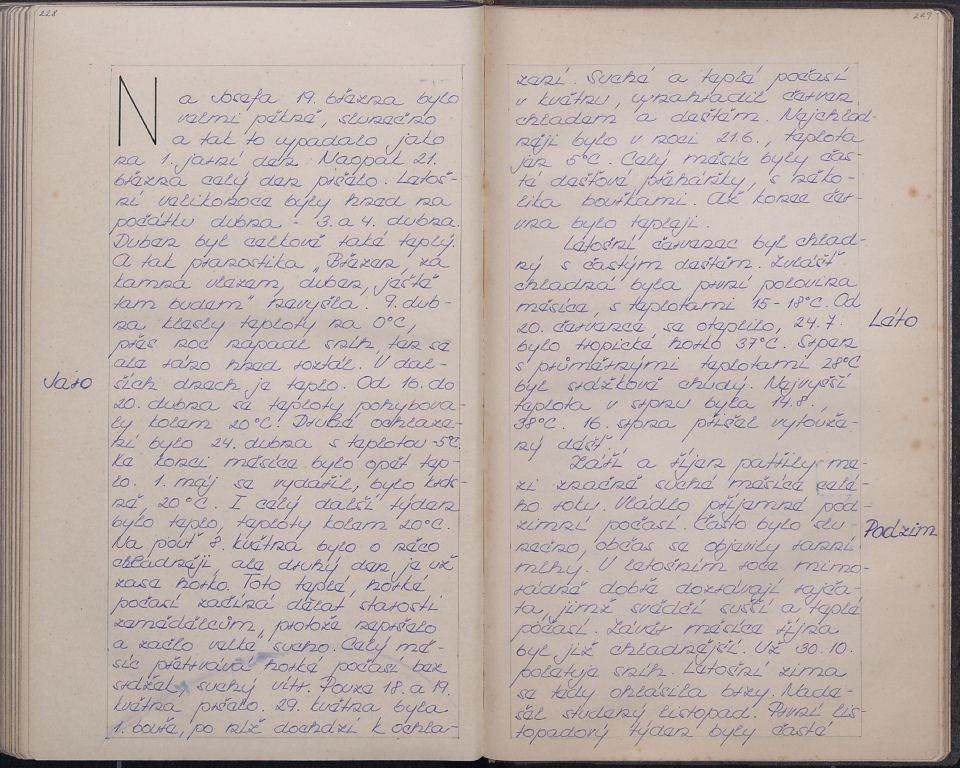 228
Na Josefa 19. března bylo
velmi pěkně, slunečno
a tak to vypadalo jako
na 1. jarní den. Naopak 21.
března celý den pršelo. Letoš-
ní velikonoce byly hned na
počátku dubna - 3. a 4. dubna.
Duben byl celkově také teplý.
A tak pranostika „Březen, za
kamna vlezem, duben, ještě
tam budem" nevyšla. 9. dub-
na klesly teploty na 0°C,
přes noc napadl sníh, ten se
ale ráno hned roztál. V dal-
ších dnech je teplo. Od 16. do
20. dubna se teploty pohybova-
ly kolem 20°C. Druhé ochlaze-
ní bylo 24. dubna s teplotou -5°C.
Ke konci měsíce bylo opět tep-
lo. 1. máj se vydařil, bylo krás-
ně, 20°C. I celý další týden
bylo teplo, teploty kolem 20°C.
Na pouť 8. května bylo o něco
chladněji, ale druhý den je už
zase horko. Toto teplé, horké
počasí začíná dělat starosti
zemědělcům, protože nepršelo
a začlo velké sucho. Celý mě-
síc přetrvává horké počasí bez
srážek, suchý vítr. Pouze 18. a 19.
května pršelo. 29. května byla
1. bouře, po níž dochází k ochla-
Jaro
229
zení. Suché a teplé počasí
v květnu, vynahradil červen
chladem a deštěm. Nejchlad-
něji bylo v noci 21.6., teplota
jen 5°C. Celý měsíc byly čas-
té dešťové přeháňky, s něko-
lika bouřkami. Až konec čer-
vna bylo tepleji.
Letošní červenec byl chlad-
ný s častým deštěm. Zvlášť
chladná byla první polovina
měsíce, s teplotami 15-18°C. Od
20. července se oteplilo, 24.7.
bylo tropické horko 37°C. Srpen
s průměrnými teplotami 28°C
byl srážkově chudý. Nejvyšší
teplota v srpnu byla 14.8.,
38°C. 16. srpna přišel vytouže-
ný déšť.
Září a říjen patřily me-
zi značně suché měsíce celé-
ho roku. Vládlo příjemné pod-
zimní počasí. Často bylo slu-
nečno, občas se objevily ranní
mlhy. V letošním roce mimo-
řádně dobře dozrávají rajča-
ta, jimž svědčí sušší a teplé
počasí. Závěr měsíce října
byl již chladnější. Už 30.10.
poletuje sníh. Letošní zima
se tedy ohlásila brzy. Nade-
šel studený listopad. První lis-
topadový týden byly časté
Léto
Podzim